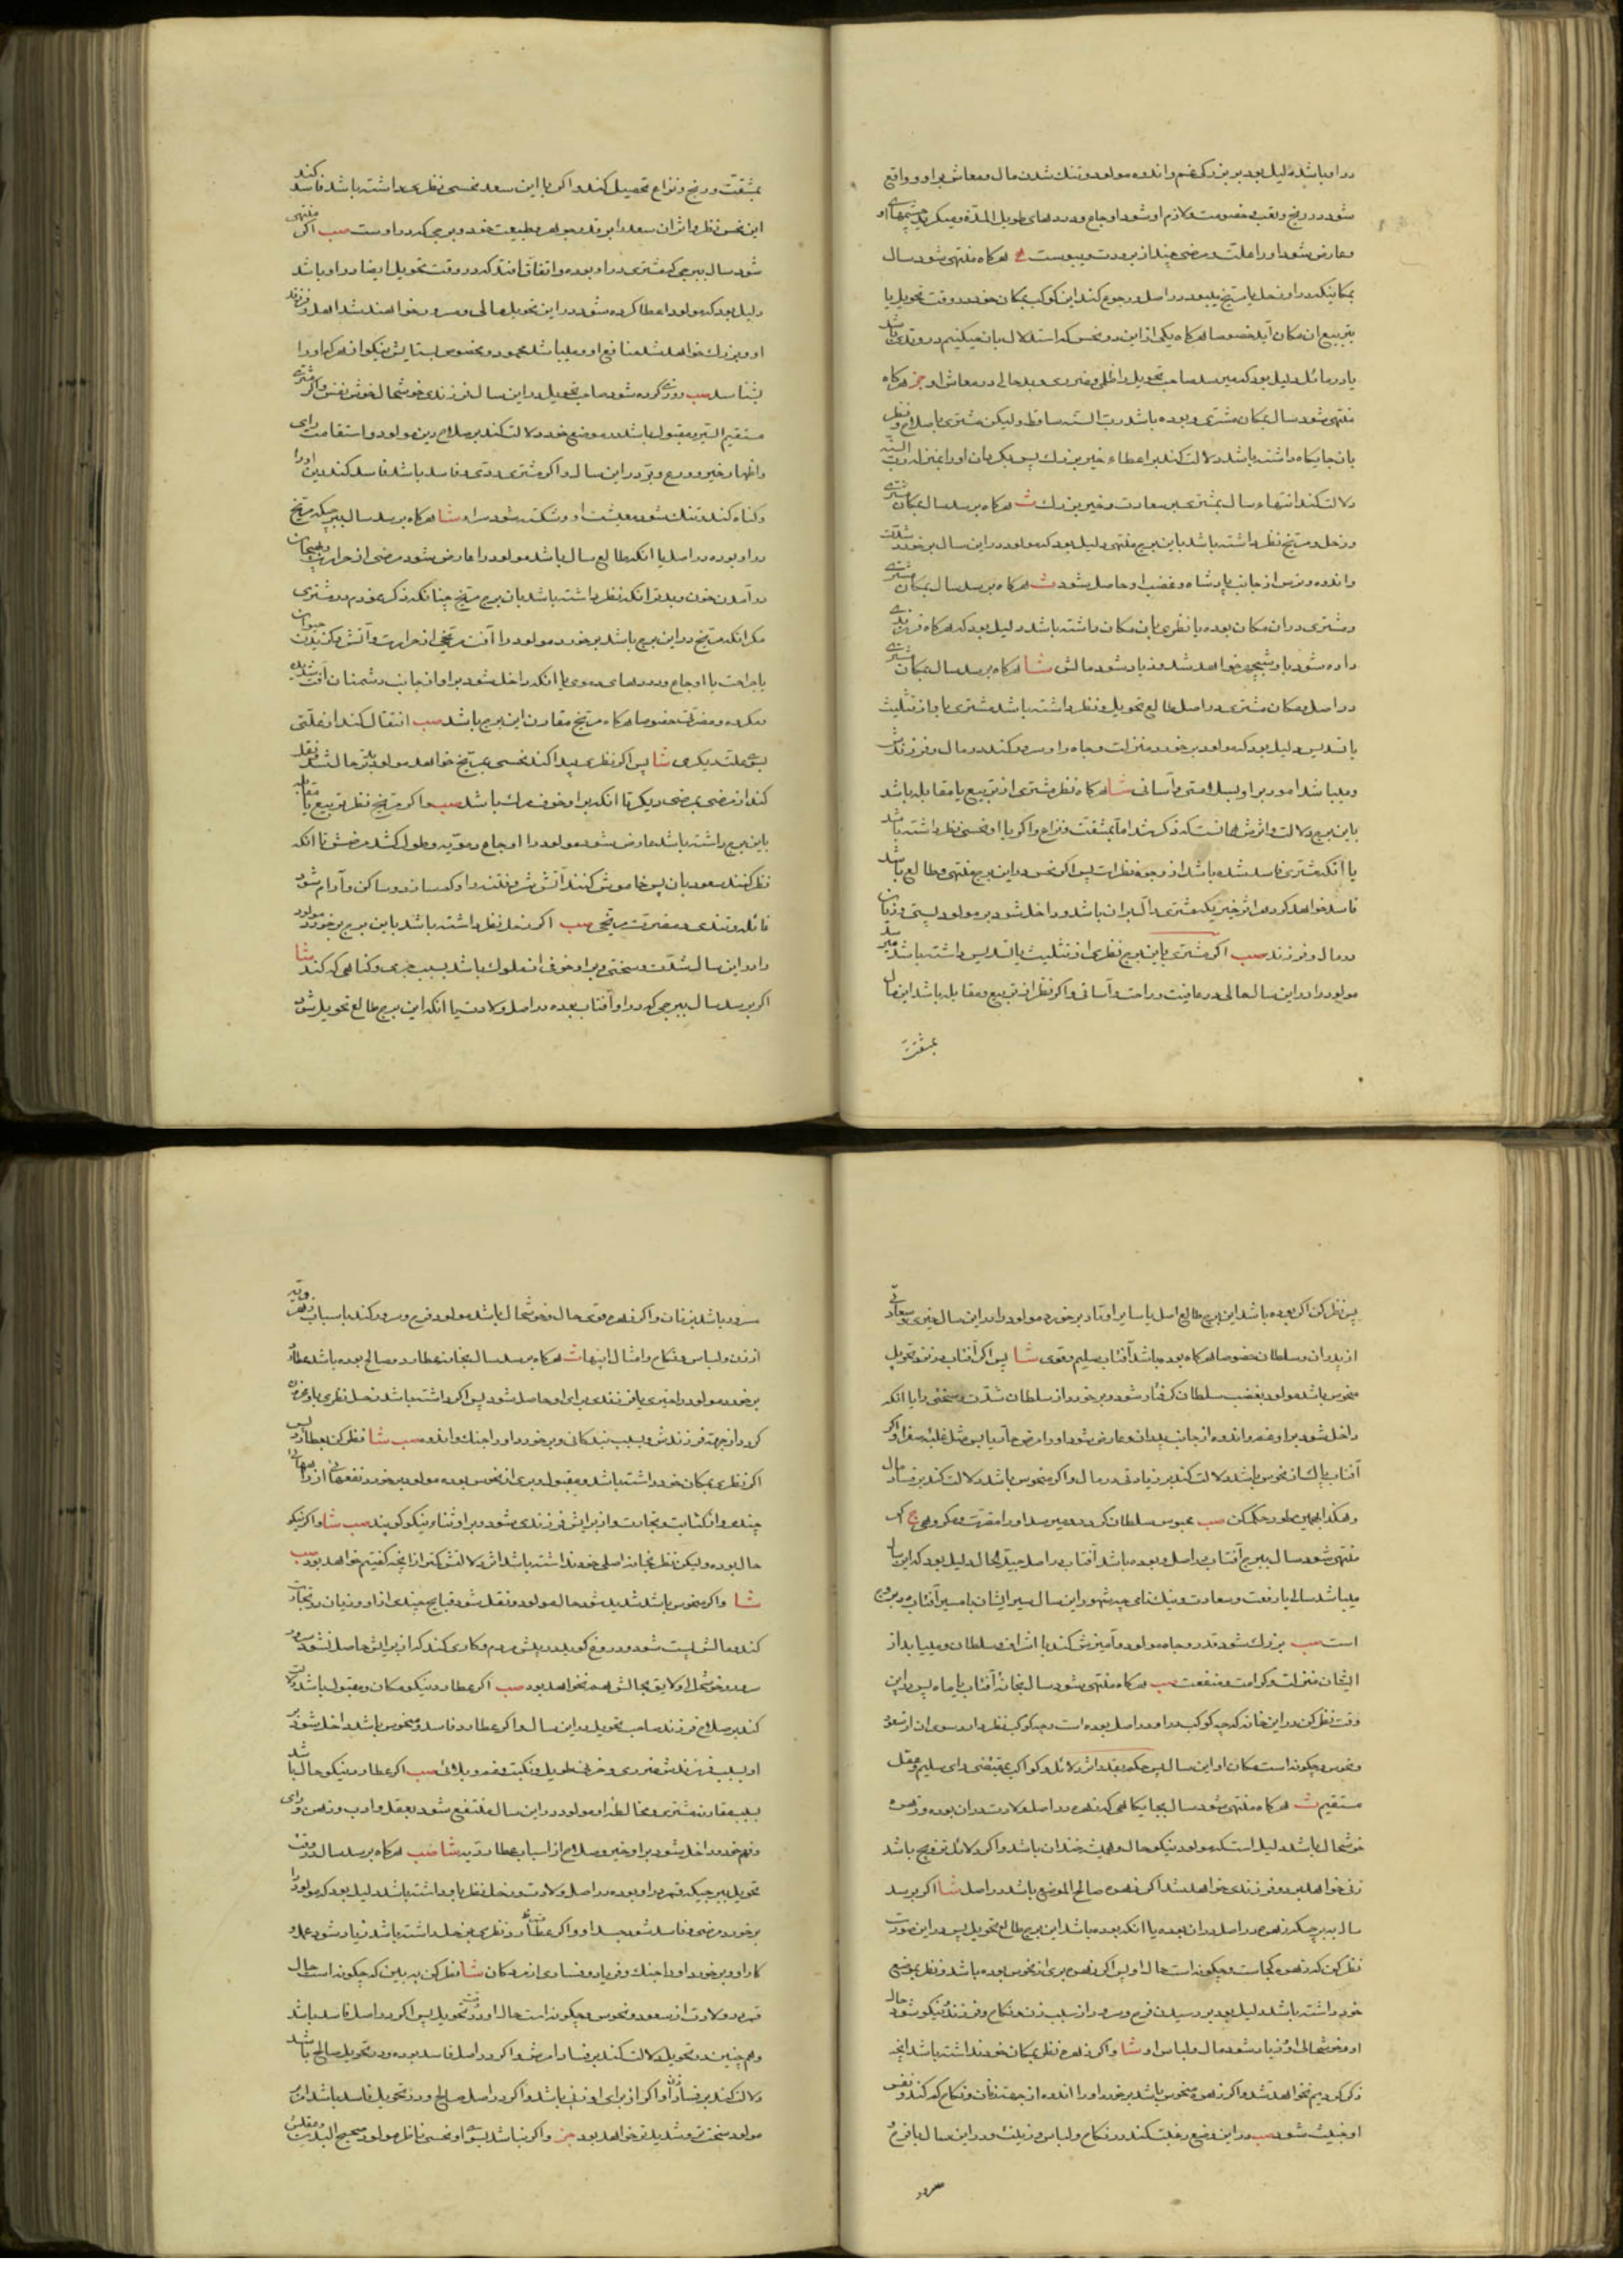 در او باشد دلیل بود بر بزرگ غم و اندوه مولود و تنک شدن مال و معاش بر او و واقع
شود در رنج و تعب و خصومت و لازم او شود اوجاع و دردهای طویل المدة و میکرید چشمهای او
و عارض شود او را علت و مرضی چند از برودت و یبوست هرکاه منتهی شود سال
بمکانیکه در او زحل یا مریخ بود در اصل و رجوع کند این کوکب بمکان خود در وقت تحویل یا
بتربیع آن مکان آید خصوصا هرکاه یکی از این دو نحس که استدلال بآن میکنیم در وتدی باشد
یا در مائل دلیل بود که میرسد صاحب تحویل را ظلمی و ضرری و بدحالی در معاش او جز هرکاه
منتهی شود سال بمکان مشتری و بوده باشد رب السنه ساقط ولیکن مشتری باصلاح و نظر
بآن جایکاه داشته باشد دلالت کند بر اعطاء خیر بزرک پس بکردان او را بمنزله رب السنه
دلالت کند انتهاء سال بمشتری بر سعادت و خیر بزرک ث هرکاه برسد سال بمکان مشتری
و زحل و مریخ نظر داشته باشد باین برج منتهی دلیل بود که مولود در این سال برخورد شدت
و اندوه و ترس از جانب پادشاه و غضب او حاصل شود ث هرکاه برسد سال بمکان مشتری
و مشتری در آن مکان بوده یا نظری بآن مکان داشته باشد دلیل بود که هرکاه فرزندی
داده شود باو شبیه خواهد شد و زیاد شود مالش شا هرکاه برسد سال بمکان مشتری
در اصل و مکان مشتری در اصل طالع تحویل و نظر داشته باشد مشتری باو از تثلیث
یا تسدیس دلیل بود که مولود برخورد منزلت و جاه را و سرور کند در مال و فرزندش
و میباشد امور بر او بسلامتی و آسانی شا هرکاه نظر مشتری از تربیع یا مقابله باشد
باین برج دلالت و اثرش همانست که ذکر شد اما بمشقت و نزاع و اکر با او نحسی نظر داشته باشد
یا آنکه مشتری فاسد شده باشد از وجوه نظرات پس اکر نحس در این برج منتهی و طالع باشد
فاسد خواهد کرد هر اثر خیریکه مشتری دال بر آن باشد و داخل شود بر مولود پستی و زیان
در مال و فرزند صب اکر مشتری باین برج نظری از تثلیث یا تسدیس داشته باشد میرسد
مولود را در این سال حالی در عافیت و راحت و آسانی و اکر نظر از تربیع و مقابله باشد این مال
بمشقت
بمشقت و رنج و نزاع تحصیل کند و اکر با این سعد نحسی نظری داشته باشد فاسد کند
این نحس نظر و اثر آن سعد را بر قدر جوهر و طبیعت خود و برجی که در او است صب اکر منتهی
شود سال ببرجی که مشتری در او بوده و اتفاق افتد که در وقت تحویل ایضا در او باشد
دلیل بود که مولود اعطا کرده شود در این تحویل مالی و مسرور خواهند شد اهل و فرزند
او و بزرک خواهد شد منافع او و میباشد محمود و مخصوص بستایش نیکو از هر که او را
بشناسد صب روزی کرده شود صاحب تحویل در این سال فرزندی خوشحال خوش نفس و اکر مشتری
مستقیم السیر و مقبول باشد در موضع خود دلالت کند بر صلاح دین مولود و استقامت رای
و اظهار خیر و ورع و بر در این سال و اکر مشتری ردی و فاسد باشد فاسد کند دین او را
و کناه کند و تنک شود معیشت او و شکسته شود مراد شا هرکاه برسد سال ببرجیکه مریخ
در او بوده در اصل یا آنکه طالع سال باشد مولود را عارض شود مرضی از حرارت و هیجان
در آمدن خون و بدتر آنکه نظر داشته باشد بآن برج مریخ چنانکه ذکر نمودم در مشتری
مکر آنکه مریخ در این برج باشد برخورد مولود را آفت مریخی از حرارت و آتش و کزیدن حیوان
یا جراحت یا اوجاع و دردهای دموی یا آنکه داخل شود بر او از جانب دشمنان آفت شدید
و مکروه و مضرت خصوصا هرکاه مریخ مقارن این برج باشد صب انتقال کند از علتی
بسوی علت دیکر شا پس اکر نظری پیدا کند نحسی بمریخ خواهد مولود بدتر حال شد نقل
کند از مرضی بمرضی دیکر تا آنکه بر او خوف مرک باشد صب و اکر مریخ نظر تربیع یا مقابله
باین برج داشته باشد عارض شود مولود را اوجاع دمویه و طول کشد مرضش تا آنکه
نظر کنند سعود بآن پس خاموش کنند آتش شر و فتنه را و کم سازد و ساکن و آرام شود
مائله و تندی و مضرت مریخی صب اکر زحل نظر داشته باشد باین برج برخورد مولود
را در این سال شدت و سختی و بر او خوف از ملوک باشد بسبب جرمی و کناهی که کند شا
اکر برسد سال ببرجی که در او آفتاب بوده در اصل ولادت یا آنکه این برج طالع تحویل شود
پس نظر کن اکر بوده باشد این برج طالع اصل یا سایر اوتاد برخورد مولود را در این سال خیری و سعادتی
از پدران و سلطان خصوصا هرکاه بوده باشد آفتاب سلیم و قوی شا پس اکر آفتاب در نزد تحویل
منحوس باشد مولود بغضب سلطان کرفتار شود و برخورد از سلطان شدت و سختی را یا آنکه
داخل شود بر او غم و اندوه از جانب پدران و عارض شود او را مرض حار یابس مثل غلبه صفرا و اکر
آفتاب پاک از نحوس باشد دلالت کند بر زیادتی در مال و اکر منحوس باشد دلالت کند بر فساد مال
و هکذا بهمین طور حکم کن صب محبوس سلطان کردد و میرسد او را مضرت و مکروهی ج اکر
منتهی شود سال ببرج آفتاب در اصل و بوده باشد آفتاب در اصل جید الحال دلیل بود که این سال
میباشد سالی با رفعت و سعادت و نیک نامی چه شهور این سال سیر ایشان با مسیر آفتاب در بروج
است صب بزرک شود قدر و جاه مولود و آمیزش کند با اشراف و سلطان و میباید از
ایشان منزلت و کرامت و منفعت صب هرکاه منتهی شود سال بخانه آفتاب یا ماه پس در این
وقت نظر کن در این خانه که چه کوکب در او در اصل بوده است و چه کوکب نظر دارد بسوی آن از سعود
و نحوس و چکونه است مکان او این سال پس حکم بقدر اثر دلائل و کواکب بمقتضی رای سلیم و عقل
مستقیم ث هرکاه منتهی شود سال بجایکاهی که زهره در اصل ولادت در آن بوده و زهره
خوشحال باشد دلیل است که مولود نیکو حال و همیشه خندان باشد و اکر دلائل تزویج باشد
زنی خواهد برد و فرزندی خواهد شد اکر زهره صالح الموضع باشد در اصل شا اکر برسد
سال به برجیکه زهره در اصل در آن بوده یا آنکه بوده باشد این برج طالع تحویل پس در این صورت
نظر کن که زهره کجاست و چکونه است حال او پس اکر زهره بری از نحوس بوده باشد و نظر بموضع
خود داشته باشد دلیل بود بر رسیدن فرح و سرور از سبب زن و نکاح و فرزند و نیکو شود حال
او و خوشحالی او و زیاد شود مال و لباس او شا و اکر زهره نظر بمکان خود نداشته باشد آنچه
ذکر کردیم نخواهد شد و اکر زهره منحوس باشد برخورد او را اندوه از جهت زنان و نکاح که کند و نفس
او خبیث شود صب در این وضع رغبت کند در نکاح و لباس و زینت و در این سال با فرح
مسرور
مسرور باشد بزنان و اکر زهره قوی حال و خوشحال باشد مولود فرح و سرور کند باسباب زهرویه
از زن و لباس و نکاح و امثال اینها ث هرکاه برسد سال بخانه عطارد و صالح بوده باشد عطارد
برخورد مولود را خیری یا فرزندی برای او حاصل شود پس اکر داشته باشد زحل نظری باو محزون
کردد از جهت فرزندش و بسبب بندکانی و برخورد او را جنک و اندوه صب شا نظر کن بعطارد پس
اکر نظری بمکان خود داشته باشد و مقبول و بری از نحوس بوده مولود برخورد نفعهائی از راههای
چندی و از کتابت و تجارت و از برایش فرزندی شود و بر او ثناء نیکو کویند صب شا و اکر نیکو
حال بوده ولیکن نظر بخانه اصلی خود نداشته باشد اثر دلالتش کمتر از آنچه کفتیم خواهد بود صب
شا و اکر منحوس باشد شدید شود حال مولود و نقل شود قبایح چندی از او و زیان در تجارت
کند و مالش پست شود و دروغ کوید در پیش مردم و کاری کند که از برایش حاصل نشود سود
سود و خوشحال و لایق بحالش هم نخواهد بود صب اکر عطارد نیکو مکان و مقبول باشد دلالت
کند بر صلاح فرزند صاحب تحویل در این سال و اکر عطارد فاسد و منحوس باشد داخل شود بر
او بسبب فرزندش ضرری و حزنی طویل و نکبت و غم و بلائی صب اکر عطارد نیکو حال باشد
بسبب مقارنه مشتری و مخالطه او مولود در این سال منتفع شود بعقل و ادب و ذهن و رای
و فهم خود و داخل شود بر او خیر و صلاح از اسباب عطاردیه شا صب هرکاه برسد سال در وقت
تحویل ببرجیکه قمر در او بوده در اصل ولادت و زحل نظر باو داشته باشد دلیل بود که مولود را
برخورد مرضی و فاسد شود جسد او و اکر عطارد نظری بزحل داشته باشد زیاد شود عدو
کار او و برخورد او را جنک و فریاد و فسادی از هر مکان شا نظر کن به بین که چکونه است حال
قمر در ولادت از سعود و نحوس و چکونه است حال او در وقت تحویل پس اکر در اصل فاسد باشد
و همچنین در تحویل دلالت کند بر فساد امرش و اکر در اصل فاسد بوده و در تحویل صالح باشد
دلالت کند بر فساد زن او اکر از برای او زنی باشد و اکر در اصل صالح و در تحویل فاسد باشد امر
مولود سخت و شدیدتر خواهد بود جز و اکر نباشد بسوی او نحسی ناظر مولود صحیح البدن و مفلس